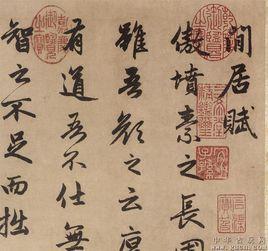 閒居賦
傲墳素之長圃
雖吾顔之云厚
有道吾不仕無
智之不足而拙
中华古玩网
www.gucn.com